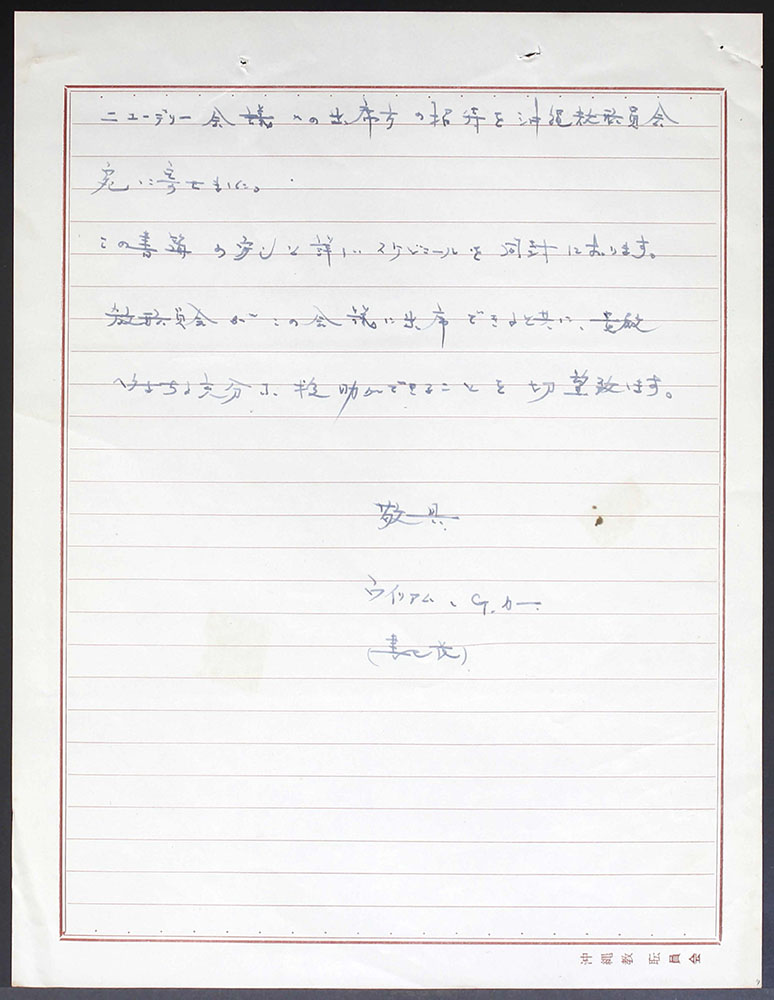 ニューデリー会議への出席方の招待を沖縄教職員会
宛に寄せました。
この書簡の写しと詳しいスケジュールを同封に
教職員会がこの会議に出席できると共に、貴殿
充分な援助ができることを切望致します。
敬具
ウイリアム、G.カー
(書記長)
沖縄教職員会